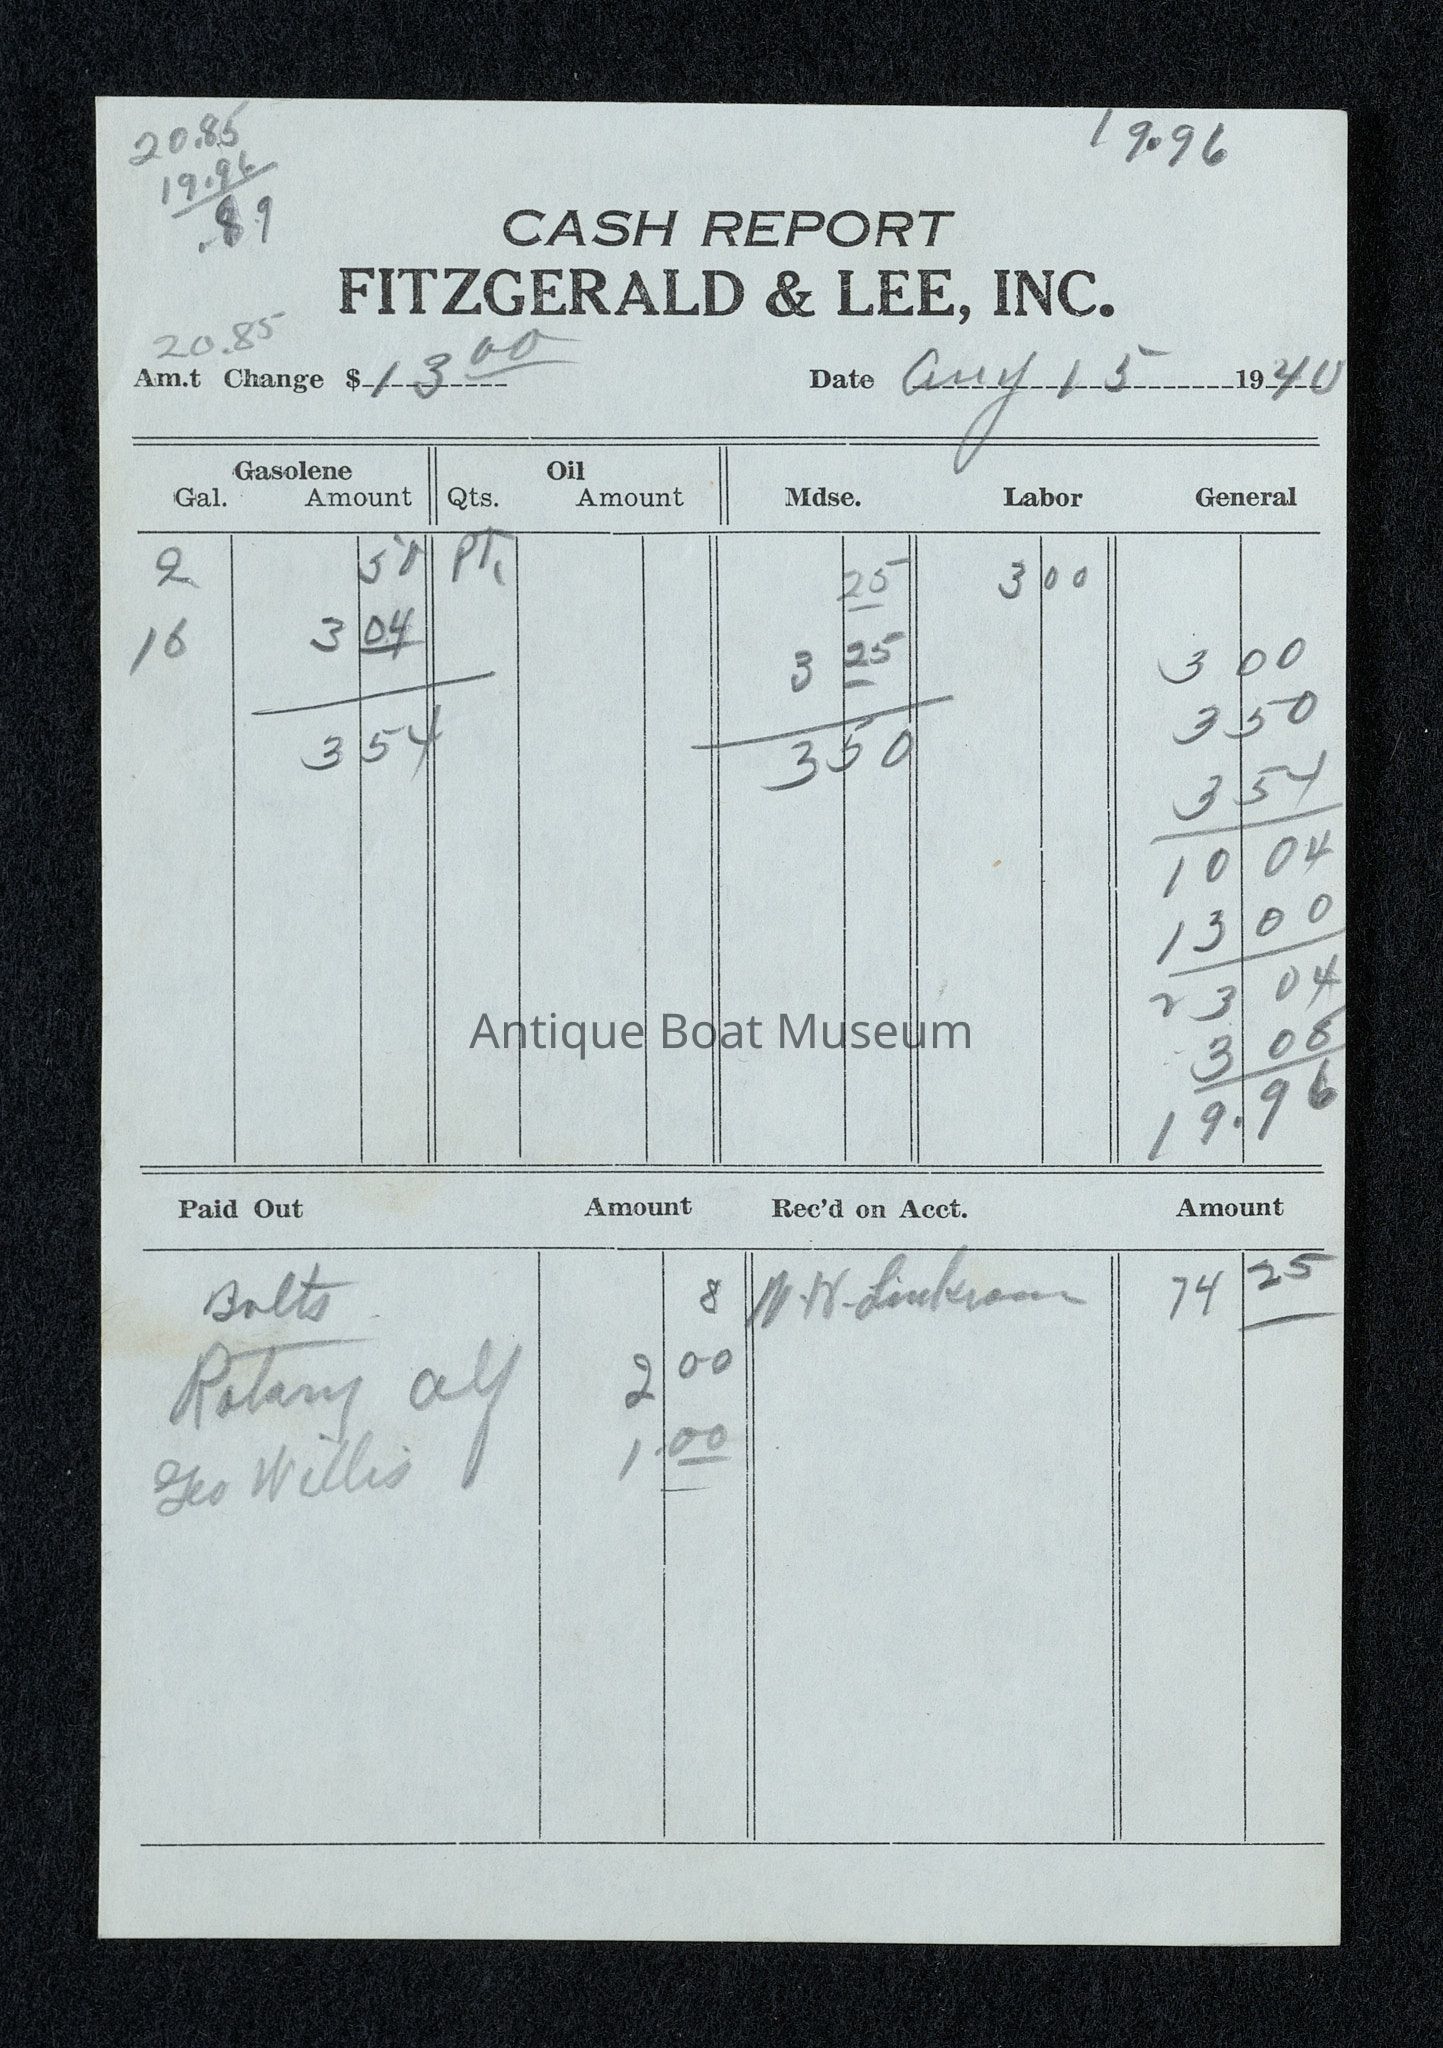 20.85
19.96
.89
19.96
CASH REPORT
FITZGERALD & LEE, INC.
20.85
Am.t Change $ 13 00 Date Aug 15 1940
Gasolene Oil
Gal. Amount Qts. Amount Mdse. Labor General
2 50 Pt. 25 3 00
16 3 04 3 25 3 00
3 54 3 50 3 50
3 54
10 04
13 00
23 04
3 08
19.96
Antique Boat Museum
Paid Out Amount Rec'd on Acct. Amount
Bolts 8 W. 74 25
Rotary 2 00
Geo Willis 1.00